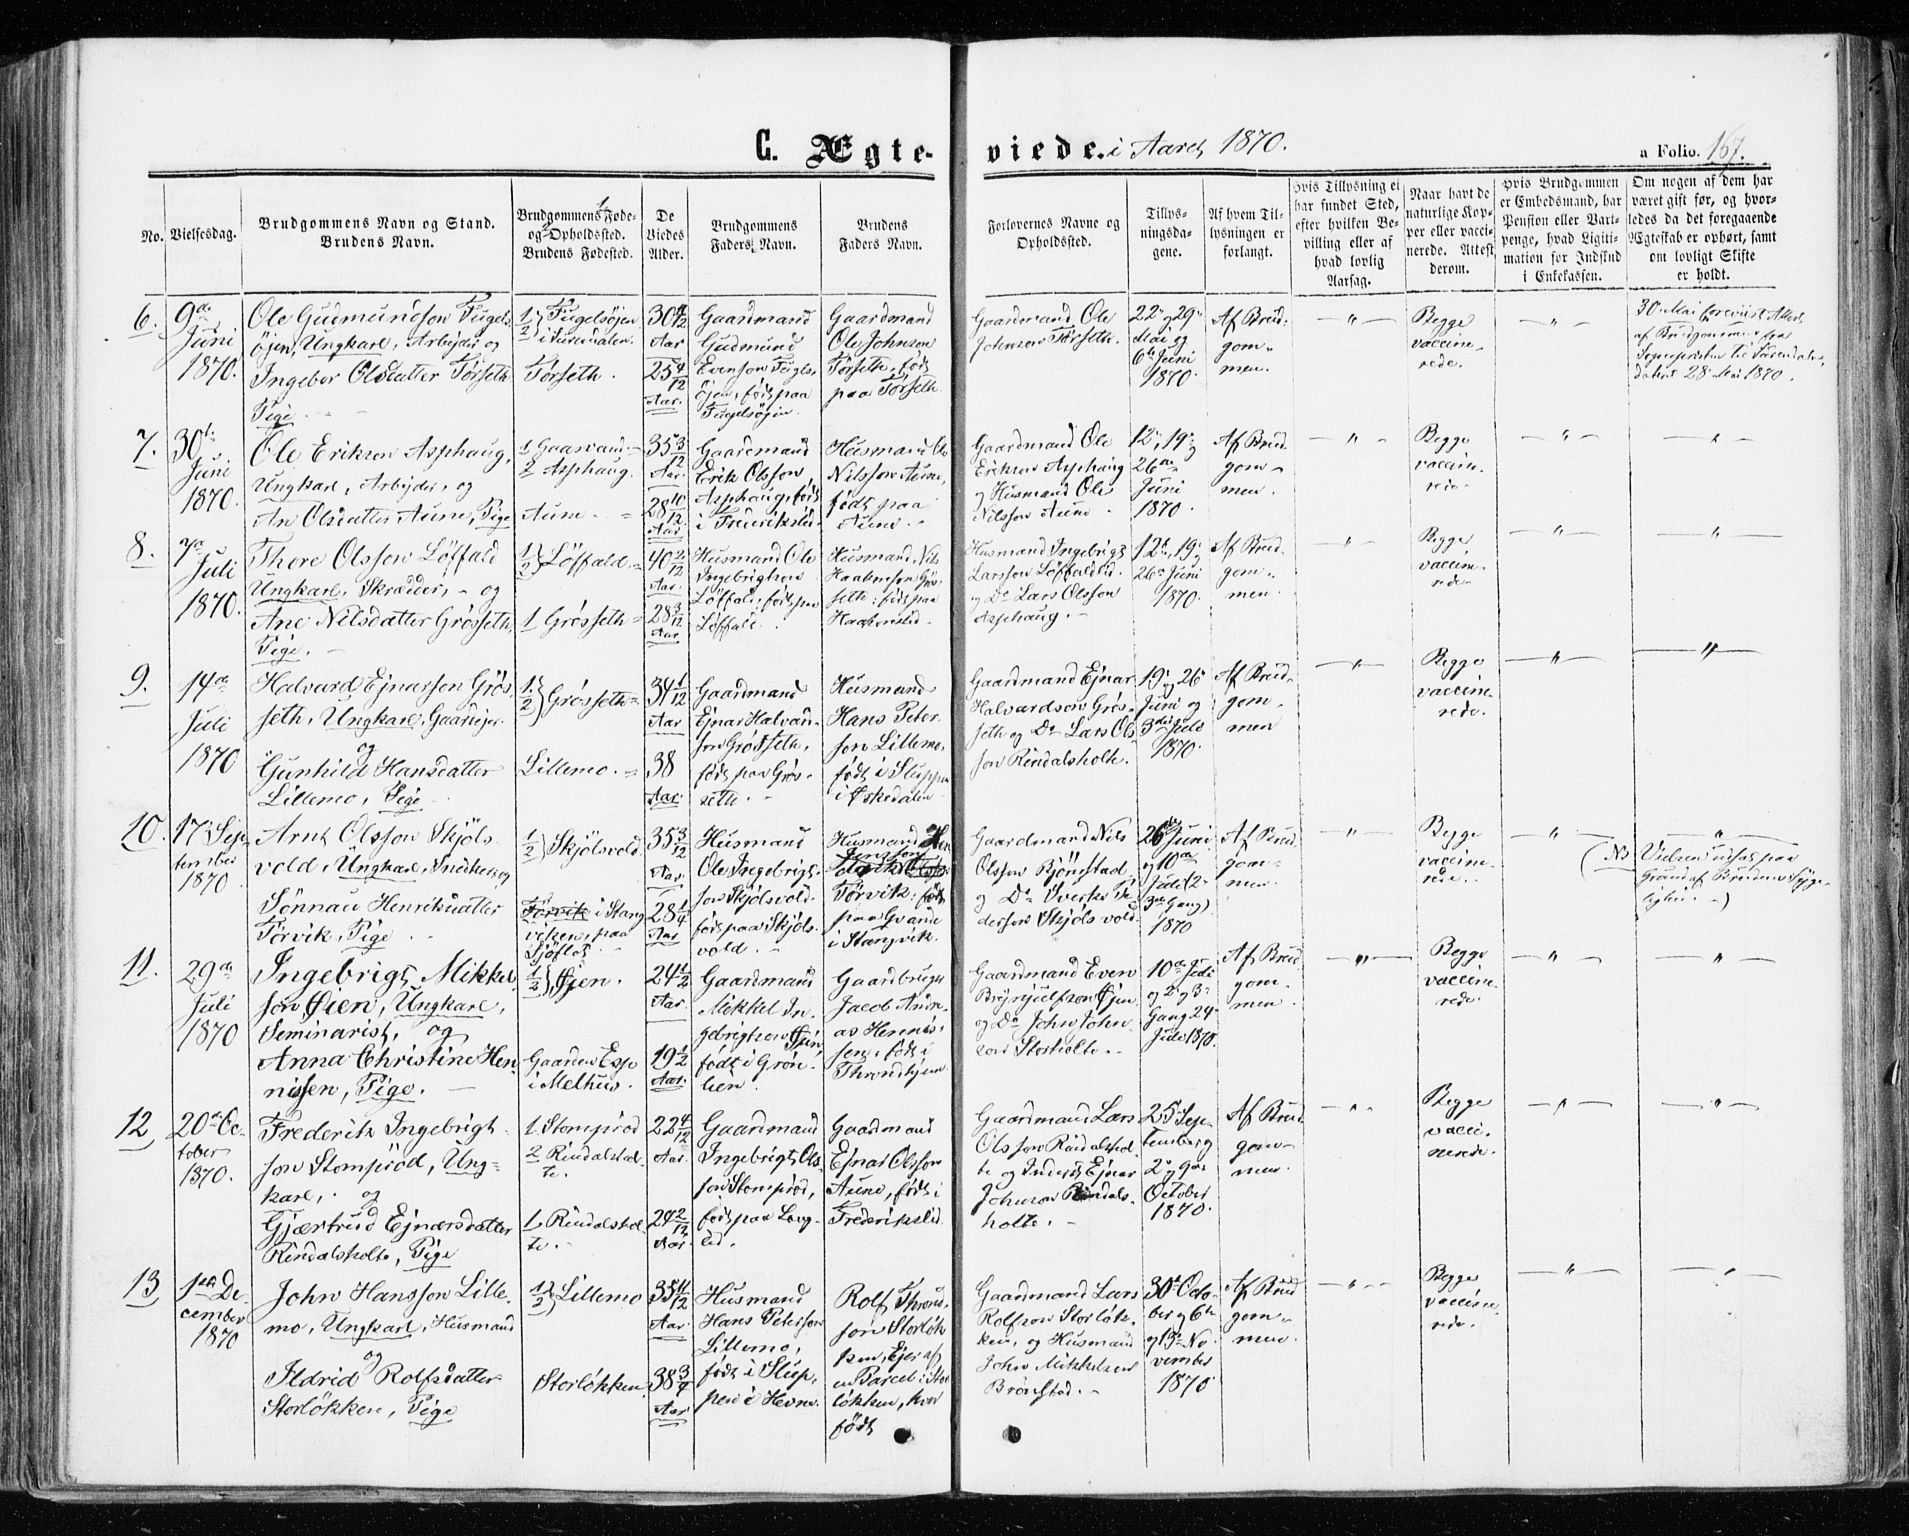 C. Ægte-
viede. i Aaret 1870.
a Folio. 167.
No.
Vielsesdag.
Brudgommens Navn og Stand.
Brudens Navn.
Brudgommens Føde-
og Opholdssted.
Brudens Fødested.
De
Viedes
Alder.
Brudgommens
Faders Navn.
Brudens
Faders Navn.
Forlovernes Navne og
Opholdssted.
Tillys-
ningsda-
gene.
Af hvem Til-
lysningen er
forlangt.
Hvis Tillysning ei
har fundet Sted,
efter hvilken Be-
villing eller af
hvad lovlig
Aarsag.
Naar havt de
naturlige Kop-
per eller vacci-
nerede. Attest
derom.
Hvis Brudgommen
er Embedsmand, har
Pension eller Vart-
penge, hvad Ligiti-
mation for Indskud
i Enkekassen.
Om nogen af dem har
været gift før, og hvor-
ledes da det foregaaende
Ægteskab er ophørt, samt
om lovligt Skifte
er holdt.
6.
9de
Juni
1870.
Ole Gudmundson Fugels-
öjen, Ungkarl, Arbejder og
Ingebor Olsdatter Törseth
Pige
1/2 } Fugelsöjen
Törseth.
30 4/12
Aar
25 4/12
Aar.
Gaardmand
Gudmund
Evenson Fugls-
öjen, født paa
Fugelsöjen.
Gaardmand
Ole Johnson
Törseth, født
paa Törseth.
Gaardmand Ole
Johnson Törseth.
22 og 29
Mai og
6te Juni
1870.
Af Brud-
gom-
men.
Begge
vaccine-
rede.
30 Mai forevist Attest
af Brudgommen fra
Sognepresten til Surendalen,
dateret 28 Mai 1870.
7.
30te
Juni
1870.
Ole Erikson Asphaug,
Ungkarl, Arbejder, og
An Olsdatter Aune, Pige
1 Gaasvand
2 Asphaug.
Aune
35 3/12
Aar.
28 10/12
Aar
Gaardmand
Erik Olsson
Asphaug, født
i Frederikslid.
Husmand Ole
Nilsson Aune,
født paa
Aune.
Gaardmand Ole
Erikson Asphaug
og Husmand Ole
Nilsson Aune
12, 19 og
26de
Juni
1870.
Af Brud-
gom-
men.
Begge
vaccine-
rede.
8.
7de
Juli
1870.
Thore Olsson Löffald
Ungkarl, Skrædder, og
Ane Nilsdatter Grösseth,
Pige.
1/2 } Löffald
1 Grösseth
40 2/12
Aar
28 3/12
Aar
Husmand Ole
Ingebrigtson
Löffald, født paa
Löffald.
Husmand Nils
Haakonson Grös-
seth, født paa
Haakonslid.
Husmand Ingebrigt
Larsson Löffaldlid
og Do Lars Olsson
Asphaug.
12te, 19 og
26 Juni
1870.
Af Brud-
gom-
men.
Begge
vaccine-
rede.
9.
14de
Juli
1870
Halvard Ejnarson Grös-
seth, Ungkarl, Gaardejer
og
Gunhild Hansdatter
Lillemo, Pige
1/2 } Grösseth
Lillemo.
34 1/12
Aar
38
Aar.
Gaardmand
Ejnar Halvard-
son Grösseth,
født paa Grös-
seth.
Husmand
Hans Peter-
son Lillemo,
født i Sluppen
Gaardmand Ejnar
Halvardson Grös-
seth og Do Lars Ols-
son Rindalsholte.
19 og 26
Juni og
3die Juli
1870.
Af Brud-
gom-
men
Begge
vaccine-
rede.
10.
17 Sep-
tember
1870
Arnt Olsson Skjöls-
vold, Ungkarl, Snedker og
Sönnau Henriksdatter
Törvik, Pige
1/2 } Skjölsvold
Törvik i Stang-
viken, paa
Sjöflot
35 3/12
Aar
28 1/4
Aar
Husmand
Ole Ingebrigt-
son Skjölsvold,
født paa Skjöls-
vold.
Husmand
Törvik, født
paa Qvande
i Stangvik.
Gaardmand Nils
Olsson Björnstad
og Do Sverke Pe-
derson Skjölsvold.
26 Juni
og 10de
Juli (2-
3die Gang)
1870
Af Brud-
gom-
men.
Begge
vaccine-
rede.
(NB Vielsen udsat paa
Grund af Brudens Syge-
lighed.)
11.
29de
Juli
1870
Ingebrigt Mikkel-
son Øien, Ungkarl,
Seminarist, og
Anna Christine Hen-
nissen, Pige.
1/2 } Øien.
Gaarden Esp
i Melhus.
24 1/2
Aar.
19 1/2
Aar.
Gaardmand
Mikkel In-
gebrigtson Øien,
født i Grön-
lien.
Gaardbruger
Jacob Andre-
as Hennis-
sen, født i
Throndhjem
Gaardmand Even
Brynjulfson Øjen
og Do John John-
son Storholte.
10de Juli
og 2 og 3
Gang 24
Juli 1870.
Af Brud-
gom-
men.
Begge
vaccine-
rede.
12
20de Oc-
tober
1870.
Frederik Ingebrigt-
son Stomprød, Ung-
karl, og
Gjærtrud Ejnarsdatter
Rindalsholte, Pige
1 Stomprød
2 Rindalshol-
te.
1 Rindalshol-
te.
22 4/12
Aar.
24 2/12
Aar.
Gaardmand
Ingebrigt Ols-
son Stomprød,
født paa Lang-
lid.
Gaardmand
Ejnar Olsson
Aune, født i
Frederikslid.
Gaardmand Lars
Olsson Rindalshol-
te og Inderst Ejnar
Johnson Rindals-
holte.
25 Sep-
tember og
2 og 9de
October
1870.
Af Brud-
gom-
men.
Begge
vacci-
nerede.
13
1ste De-
cember
1870
John Hansson Lille-
mo, Ungkarl, Husmand
og
Ildrid Rolfsdatter
Storlökken, Pige
1/2 } Lillemo
Storlökken.
35 11/12
Aar
38 3/4
Aar
Husmand
Hans Peterson
Lillemo,
født i Slup-
pen i Hevne.
Rolf Thron-
son Storlök-
ken, Ejer af
en Parcel i Stor-
lökken, hvor
født
Gaardmand Lars
Rolfson Storlök-
ken, og Husmand
John Mikkelson
Brönstad.
30 Octo-
ber og 6te
og 13 No-
vember
1870
Af Brud-
gom-
men.
Begge
vaccine-
rede.